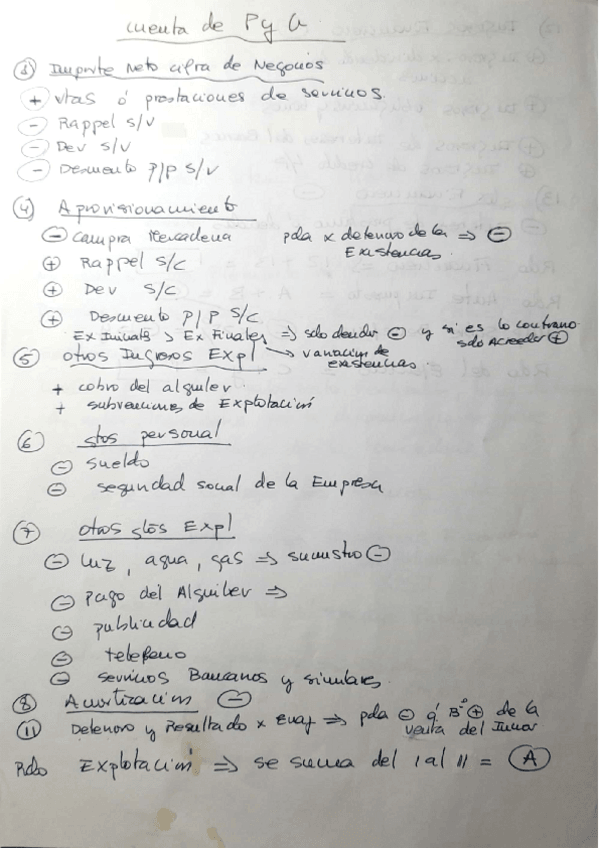 cuenta de P y G
① Importe Neto cifra de Negocios
+ vtas ó prestaciones de servicios.
- Rappel S/V
- Dev S/V
- Descuento P/P S/V
④ Aprovisionamiento
- compra Mercaderia pda x deterioro de la ⇒ -
Existencias.
+ Rappel S/C
+ Dev S/C
+ Descuento P/P S/C
Ex Iniciales > Ex Finales ⇒ sdo deudor - y si es lo contrario
sdo Acreedor +
⑤ otros Ingresos Expl → variación de
existencias.
+ cobro del alquiler.
+ subvenciones de Explotación
⑥ gtos personal
- sueldo
- seguridad social de la Empresa
⑦ otros gtos Expl
- luz, agua, gas ⇒ sumistro -
- pago del Alquiler ⇒
- publicidad
- telefono
- servicios Bancarios y similares.
⑧ Amortización -
⑪ Deterioro y Resultado x Enaj ⇒ pda - ó Bº + de la
venta del Inmov
Rdo Explotación ⇒ se suma del 1 al 11 = A